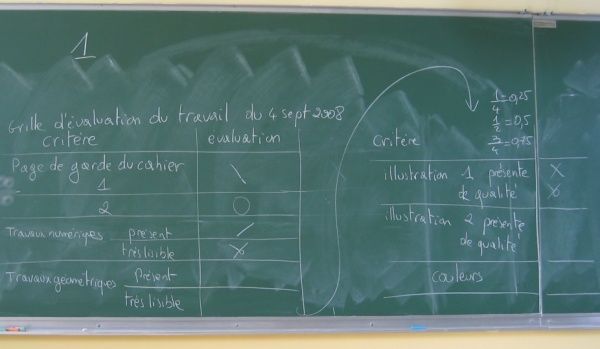 1
Grille d'évaluation du travail du 4 sept 2008
critère evaluation
Page de garde du cahier \
1
2 O
Travaux numériques présent /
très lisible X
Travaux géométriques Présent
très lisible
1/4 = 0,25
1/2 = 0,5
3/4 = 0,75
Critère
illustration 1 présente X
de qualité X
illustration 2 présente
de qualité
couleurs